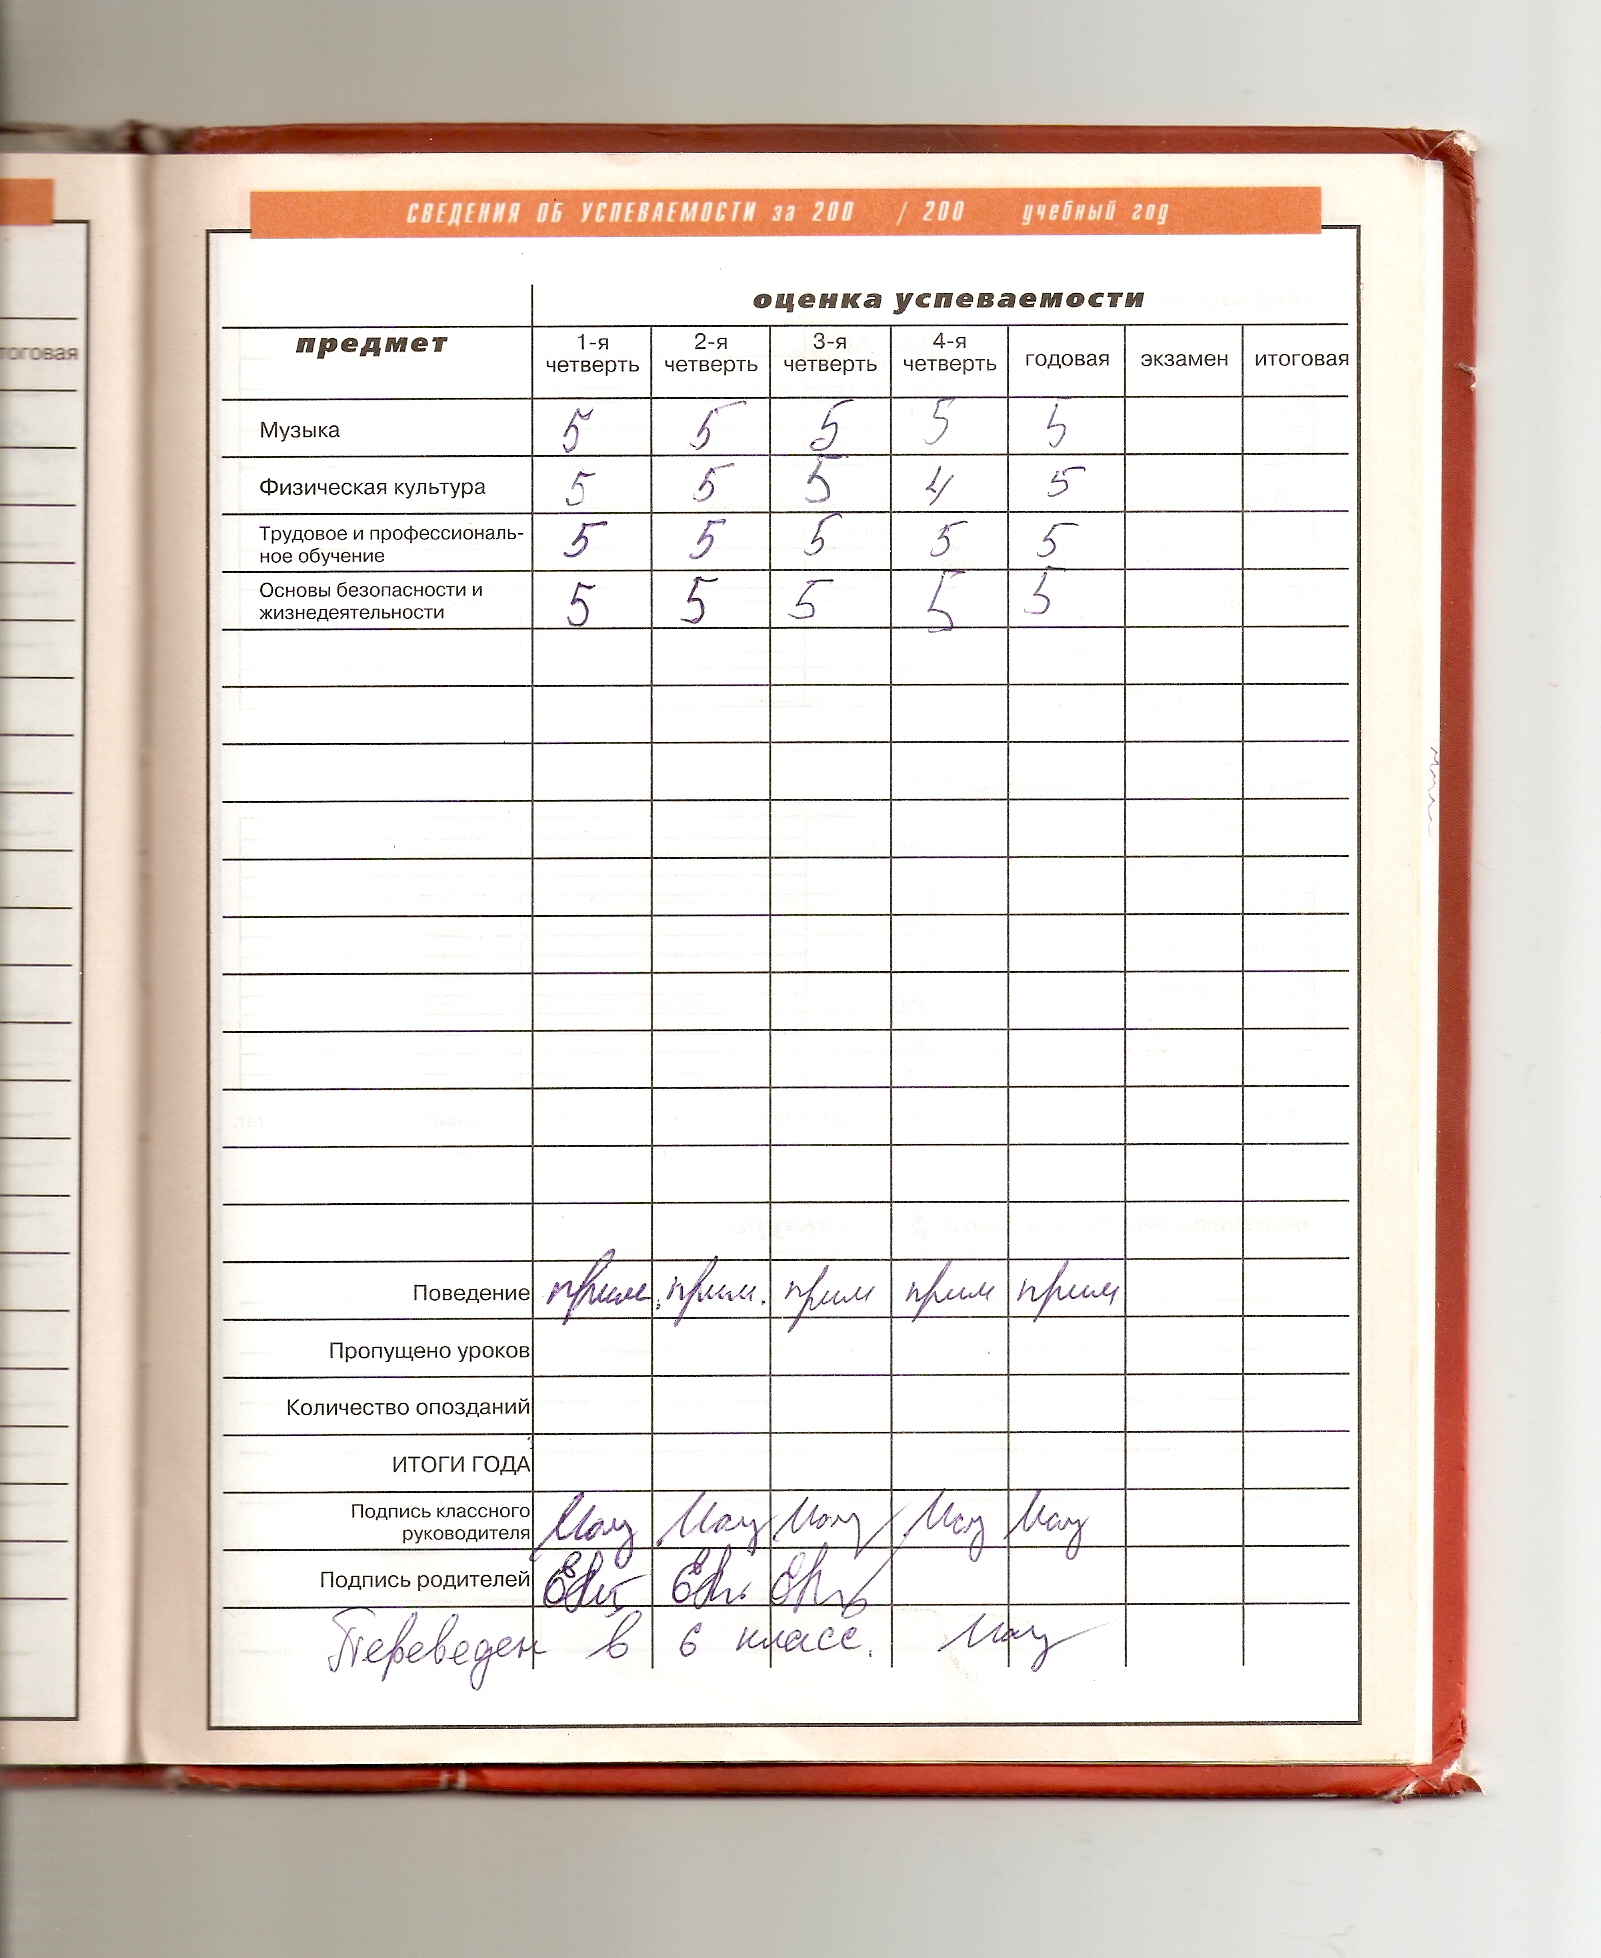 СВЕДЕНИЯ ОБ УСПЕВАЕМОСТИ за 200 / 200 учебный год
оценка успеваемости
предмет
1-я четверть 2-я четверть 3-я четверть 4-я четверть годовая экзамен итоговая
Музыка 5 5 5 5 5
Физическая культура 5 5 5 4 5
Трудовое и профессиональ-
ное обучение 5 5 5 5 5
Основы безопасности и
жизнедеятельности 5 5 5 5 5
Поведение прим. прим. прим прим прим
Пропущено уроков
Количество опозданий
ИТОГИ ГОДА
Подпись классного
руководителя
Подпись родителей
Переведен в 6 класс.
тоговая